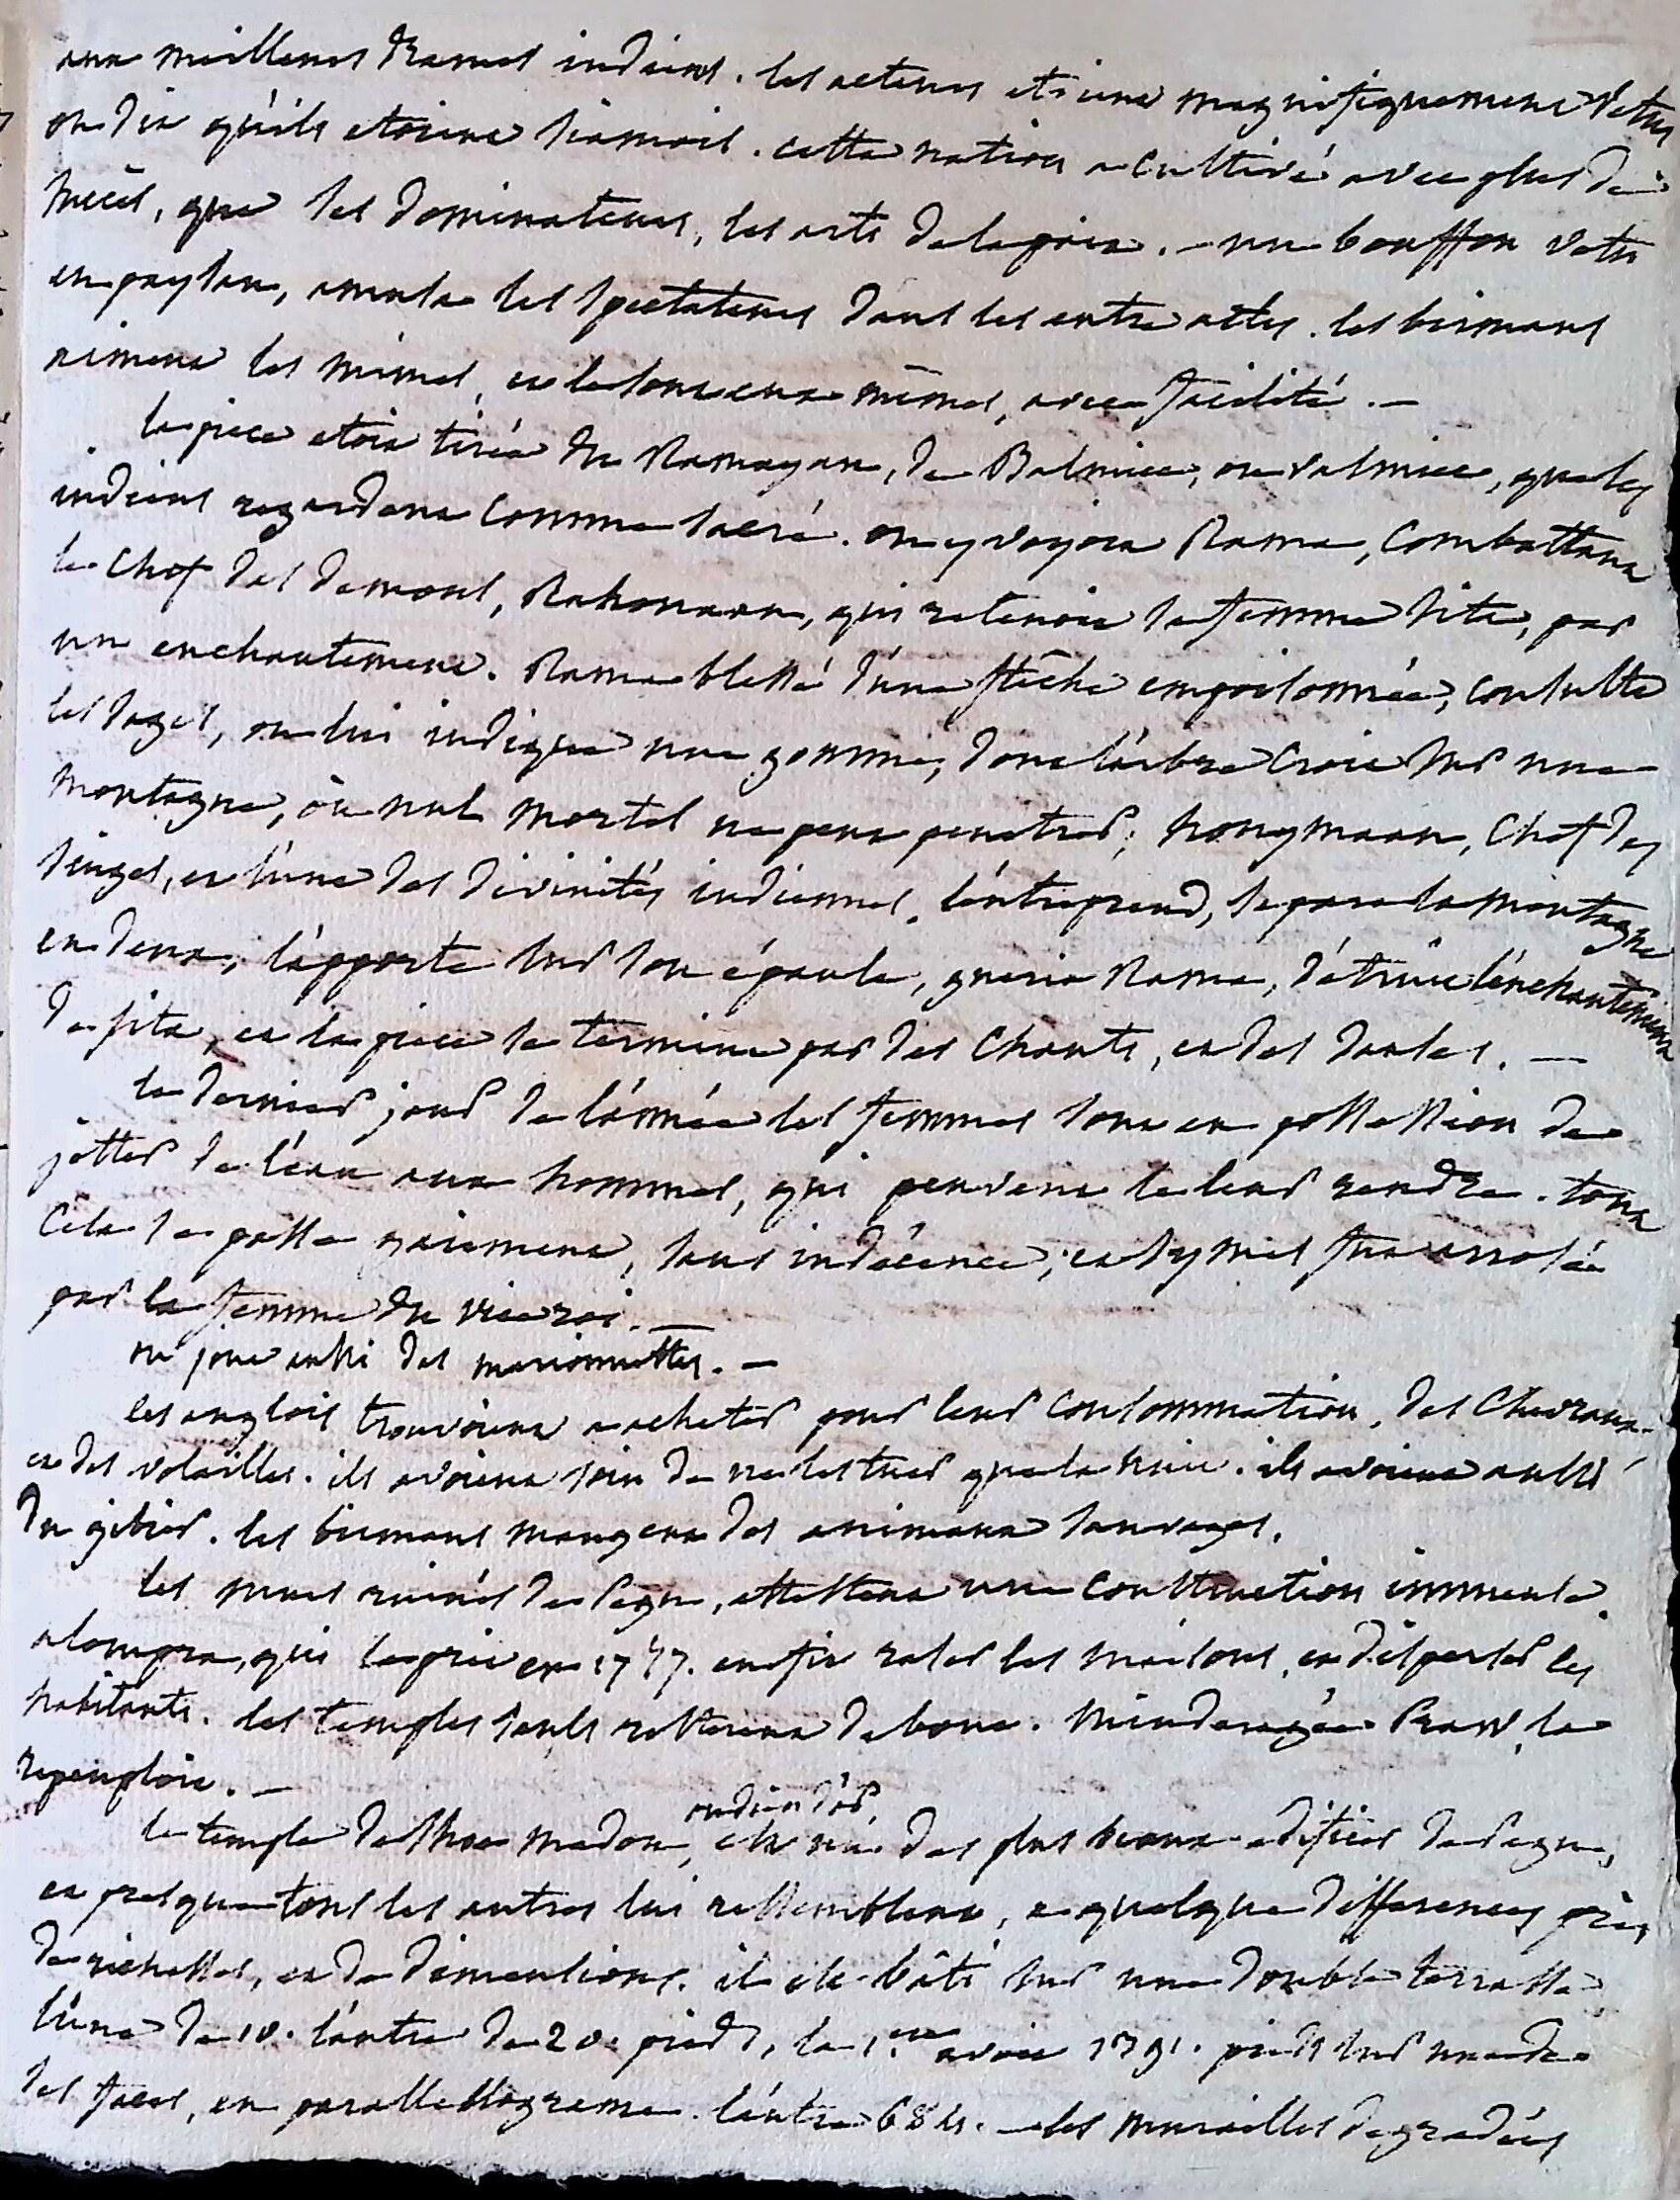 aux meilleurs drames indiens. les acteurs etoient magnifiquement vetus
on dit qu'ils etoient siamois. cette nation a cultivé avec plus de
succès, que ses dominateurs, les arts de la paix. – un bouffon vetu
en paysan, amusa les spectateurs dans les entre actes. les birmans
aiment les mimes, et le sont eux mêmes, avec facilité. –
la piece etoit tirée du Ramayan, de Balmiec, ou valmiec, que les
indiens regardent comme sacré. on y voyoit Rama, combattant
le chef des demons, Rahwaan, qui retenoit sa femme sita, par
un enchantement. Rama blessé d'une flêche empoisonnée, consulte
les sages, on lui indique une gomme, dont l'arbre croit sur une
montagne, où nul mortel ne peut penetrer; honymaan, chef des
singes, et l'une des divinités indiennes, l'entreprend, separe la montagne
en deux, l'apporte sur son épaule, guerit Rama, détruit l'enchantement
de sita, et la piece se termine par des chants, et des danses. –
le dernier jour de l'année les femmes sont en possession de
jetter de l'eau aux hommes, qui peuvent le leur rendre. tout
cela se passe gaiement, sans indécence; et symes fut arrosé
par la femme du viceroi. –
on joue aussi des marionnettes. –
les anglois trouvoient a acheter pour leur consommation, des chevreaux
et des volailles. ils avoient soin de ne les tuer que la nuit. ils avoient aussi
du gibier. les birmans mangent des animaux sauvages.
les murs ruinés de Pegu, attestent une construction immense.
alompra, qui la prit en 1757. en fit raser les maisons, et disperser les
habitants. les temples seuls resterent debout. Minderagée Praw, la
repeuploit. –
ou dieu d'or,
le temple de shoe madou, est un des plus beaux edifices de Pegu,
et presque tous les autres lui ressemblent, a quelque differences près,
de richesses, et de dimentions. il est bâti sur une double terrasse
l'une de 10. l'autre de 20. pieds, la 1.ere avoit 1391. pieds sur une de
ses faces, en parallellograme. l'autre 684. – les murailles degradées